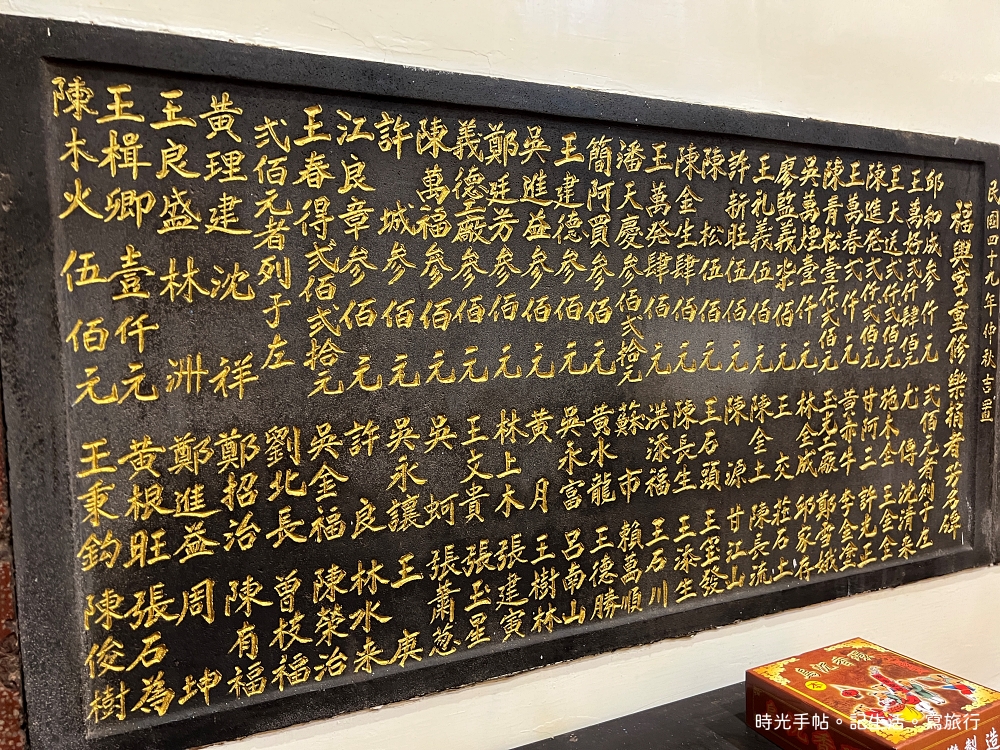 民國四十九年仲秋吉置
福興宮重修樂捐者芳名碑
邱和成参仟元 弍佰元者列于左
王萬好弍仟肆佰元 尤傳 沈清泉
王天送弍仟弍佰元 施木全 王金全
陳進発弍仟弍佰元 甘阿三 許光正
王萬春弍仟元 黃赤牛 李金塗
陳青松壹仟弍佰元 玉元工廠 鄭雪娥
吳萬煙壹仟元 林全成 邱家存
廖監義柒佰元 王交 莊石土
王礼義伍佰元 陳金土 陳長流
許新旺伍佰元 陳源 甘江山
陳松伍佰元 王石頭
陳金生肆佰元 陳長生 王添生
王萬発肆佰元 洪添福 王石川
潘天慶参佰弍拾元 蘇市 賴萬順
簡阿買参佰元 黃水龍 王德勝
王建德参佰元 吳永富 呂南山
吳進益参佰元 黃月 王樹林
鄭廷芳参佰元 林上木 張建寅
義德工廠参佰元 王文貴 張玉星
陳萬福参佰元 吳蚵 張蕭葱
許城参佰元 吳永讓 王庚
江良章参佰元 許良 林水来
王春得弍佰弍拾元 吳金福 陳榮治
弍佰元者列于左 劉北長 曾枝福
黃理建 沈祥 鄭招治 陳有福
王良盛 林洲 鄭進益 周坤
王楫卿壹仟元 黃根旺 張石為
陳木火伍佰元 王秉鈞 陳俊樹
時光手帖。記生活。寫旅行
製造